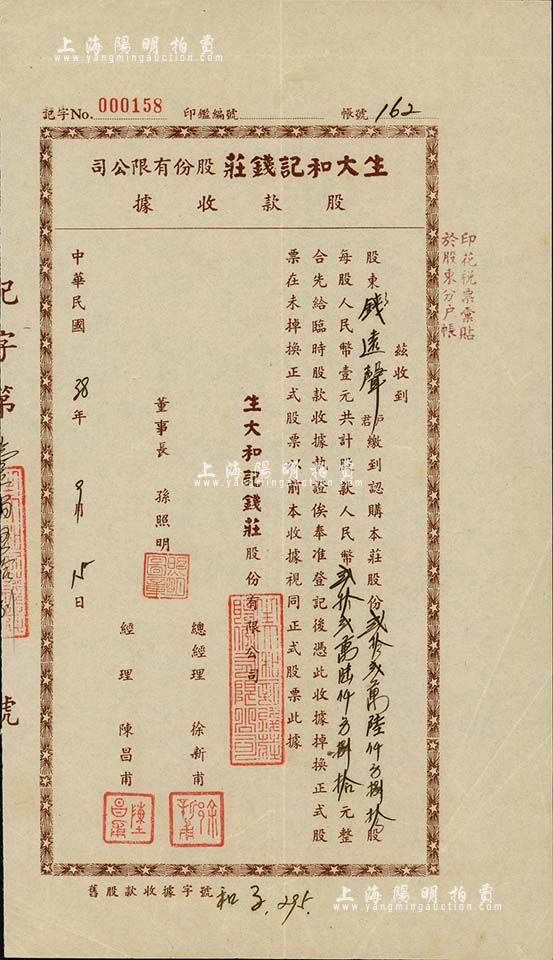 上海陽明拍賣
www.yangmingauction.com
記字No. 000158 印鑑編號 帳號 162
生大和記錢莊股份有限公司
股款收據
印花稅票彙貼
於股東分戶帳
茲收到
股東 錢遠聲 戶君 繳到認購本莊股份 貳拾貳萬陸仟另捌拾 股
每股人民幣壹元共計股款人民幣 貳拾貳萬陸仟另捌拾 元整
合先給臨時股款收據執證俟奉准登記後憑此收據掉換正式股
票在未掉換正式股票以前本收據視同正式股票此據
生大和記錢莊股份有限公司
董事長 孫照明
總經理 徐新甫
經理 陳昌甫
中華民國 38 年 9 月 15 日
上海陽明拍賣
www.yangmingauction.com
記字第
號
舊股款收據字號 和子.295.
上海陽明拍賣
www.yangmingauction.com